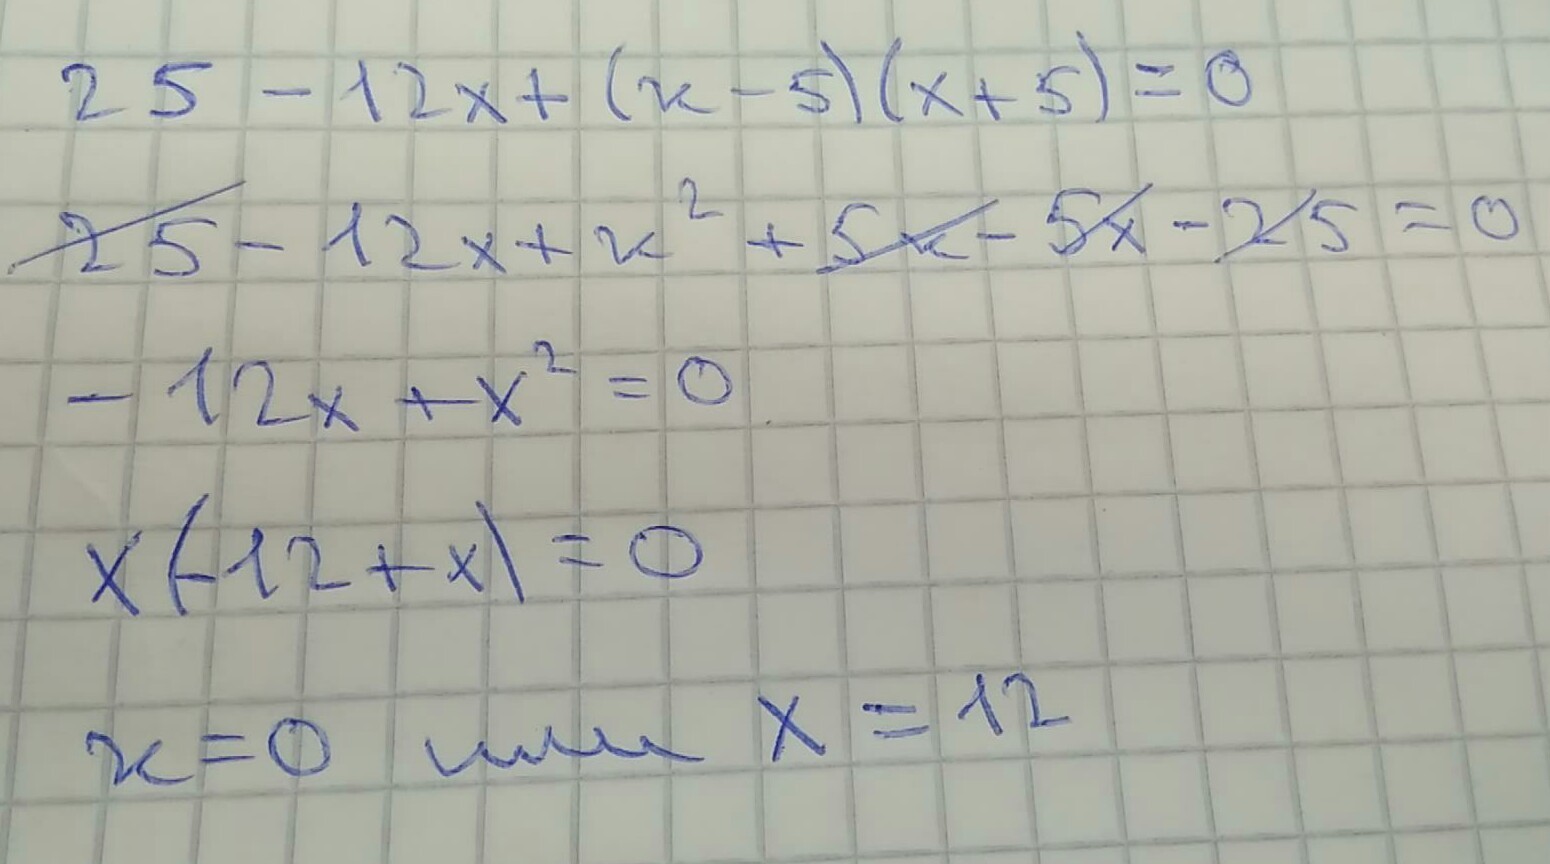 25 - 12x + (x - 5)(x + 5) = 0
25 - 12x + x² + 5x - 5x - 25 = 0
- 12x + x² = 0
x(-12 + x) = 0
x = 0 или x = 12